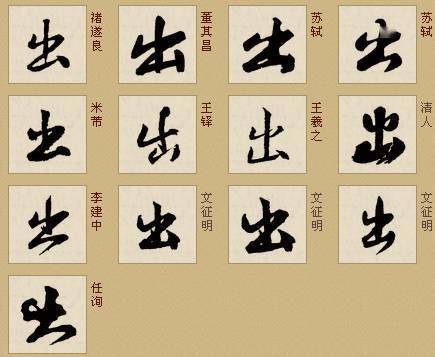 出 褚遂良 出 董其昌 出 苏轼 出 苏轼
出 米芾 出 王铎 出 王羲之 出 清人
出 李建中 出 文征明 出 文征明 出 文征明
出 任询